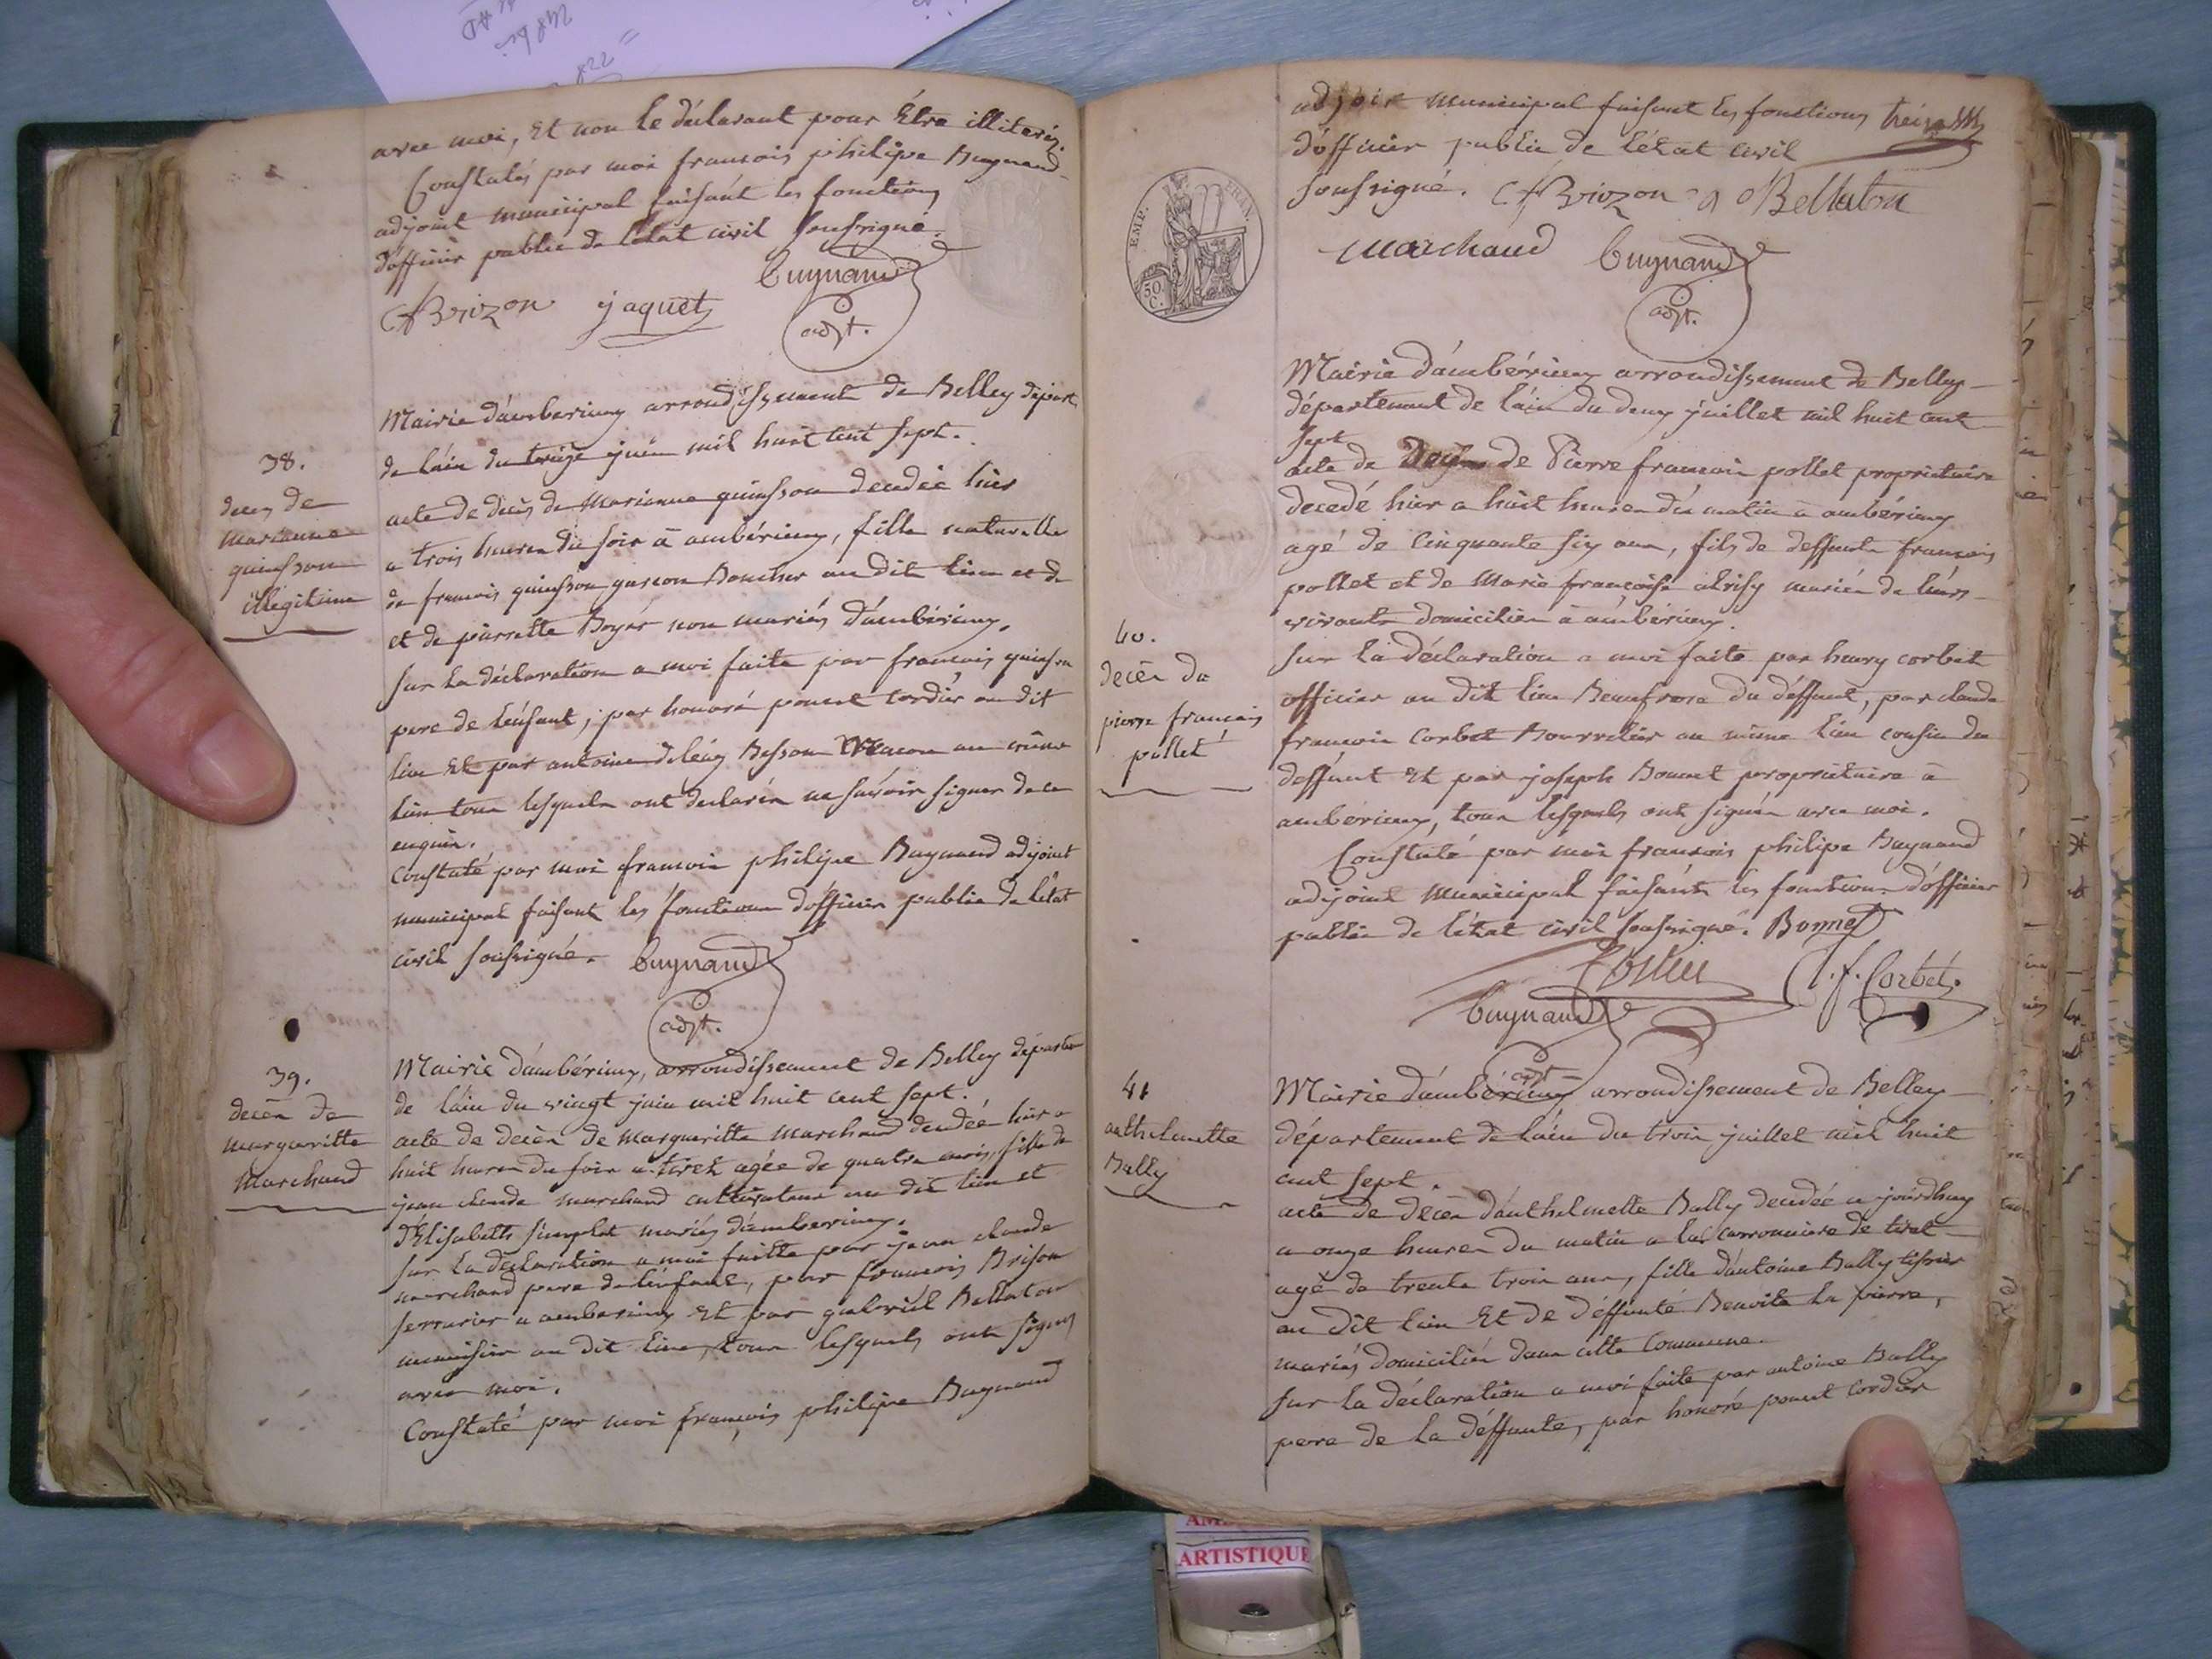 avec moi, et non le déclarant pour être illiteré.
Constatés par moi francois philipe Buynand
adjoint municipal faisant les fonctions
d'officier public de l'état civil soussigné.
Buynand
Brizon jaquet
adjt.
38.
deces de
marianne
quinsson
illégitime
Mairie d'amberieux arrondissement de Belley départ
de l'ain du treize juin mil huit cent sept.
acte de deces de Marianne quinsson decedée hier
a trois heures du soir à ambérieux, fille naturelle
de francois quinsson garcon Boucher au dit lieu et de
et de pierrette Boyer non mariés d'ambérieux.
sur la déclaration a moi faite par francois quinson
pere de l'enfant, par honoré poncet cordier au dit
lieu et par antoine Besson Macon au même
lieu tous lesquels ont declarés ne savoir signer de ce
enquis.
Constaté par moi francois philipe Buynand adjoint
municipal faisant les fonctions d'officier public de l'état
civil soussigné. Buynand
adjt.
39.
decès de
margueritte
marchand
Mairie d'ambérieux, arrondissement de Belley départem
de l'ain du vingt juin mil huit cent sept.
acte de decès de Margueritte Marchand decedée hier a
huit heures du soir a tiret agée de quatre mois, fille de
jean claude marchand cultivateur au dit lieu et
d'Elisabeth simplet mariés d'amberieux.
sur la déclaration a moi faitte par jean claude
marchand pere de l'enfant, par francois Brison
serrurier a amberieux et par gabriel Bellaton
menuisier au dit lieu, tous lesquels ont signés
avec moi.
Constaté par moi françois philipe Buynand
adjoint municipal faisant les fonctions
d'officier public de l'état civil
soussigné. Brizon g Bellaton
marchand Buynand
adjt.
EMP. FRAN.
50 C.
40.
decès de
pierre français
pollet
Mairie d'ambérieux arrondissement de Belley
département de l'ain du deux juillet mil huit cent
sept
acte de de Pierre francois pollet propriétaire
decedé hier a huit heures du matin à ambérieux
agé de cinquante six ans, fils de deffunts françois
pollet et de Marie françoise mariés de leurs
vivants domiciliés à ambérieux.
sur la déclaration a moi faite par henry corbet
officier au dit lieu Beaufrere du deffunt, par claude
francois Corbet Bourrelier au même lieu cousin du
deffunt et par joseph Bonnet proprietaire à
amberieux, tous lesquels ont signés avec moi.
Constaté par moi francois philipe Buynand
adjoint municipal faisant les fonctions d'officier
public de l'état civil soussigné. Bonnet
C. f. Corbet.
Buynand
adjt.
41
anthelmette
Bally
Mairie d'ambérieux arrondissement de Belley
département de l'ain du trois juillet mil huit
cent sept.
acte de decès d'anthelmette Bally decedée aujourdhuy
a onze heures du matin a la carronniere de tiret
agé de trente trois ans, fille d'antoine Bally tissier
au dit lieu et de déffunte Benoite la pierre,
mariés domiciliés dans cette commune.
sur la déclaration a moi faite par antoine Bally
pere de la déffunte, par honoré poncet cordier
ARTISTIQUE